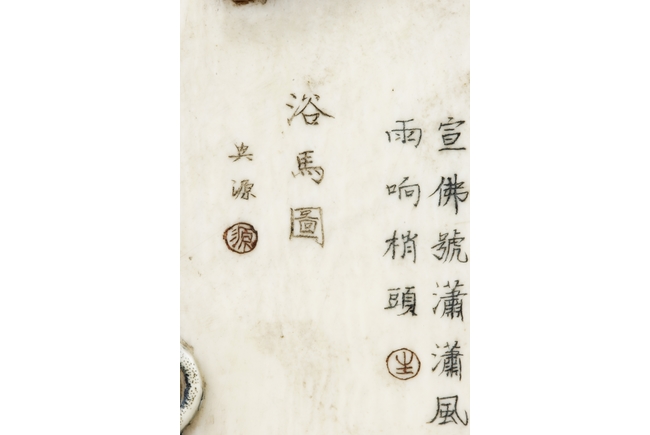 宣佛號瀟瀟風
雨响梢頭
生
浴馬圖
吳源
源